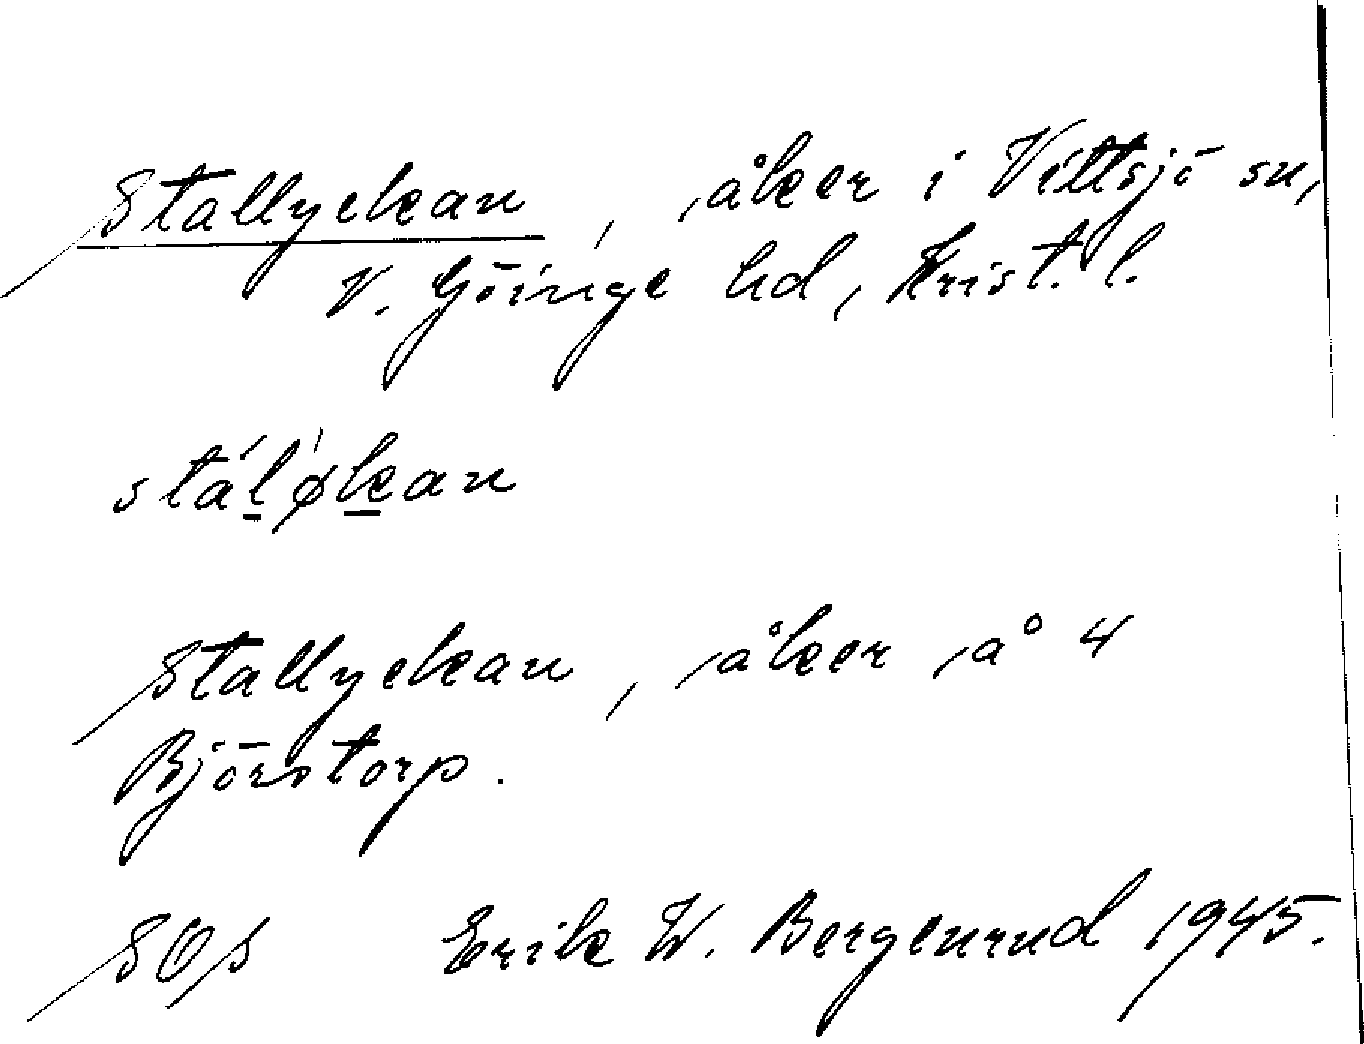 Stallyckan, åker i Vittsjö sn,
V. Göinge hd, Krist. l.
stáḻø̍ḵan
Stallyckan, åker å 4
Björstorp.
SOS Erik W. Bergenrud 1945.